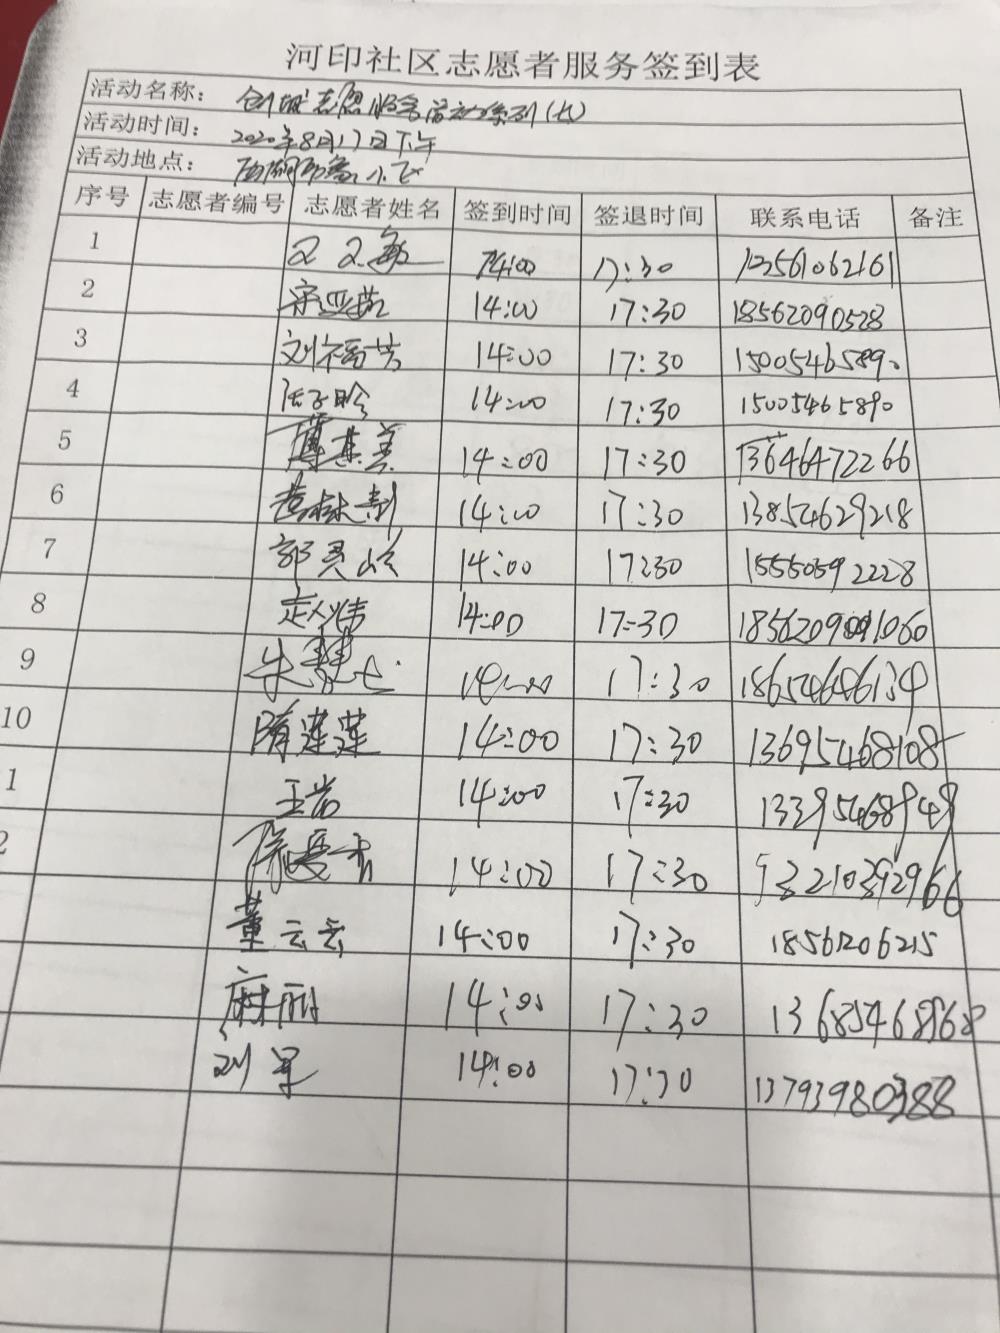 河印社区志愿者服务签到表
活动名称： 创城志愿服务活动系列(七)
活动时间： 2020年8月17日下午
活动地点： 小区
序号 志愿者编号 志愿者姓名 签到时间 签退时间 联系电话 备注
1 14:00 17:30
2 宋亚茹 14:00 17:30 18562090528
3 刘福芳 14:00 17:30 15005465890
4 14:00 17:30 15005465890
5 薄其美 14:00 17:30 13646472266
6 14:00 17:30 13854629218
7 郭灵岭 14:00 17:30 15550592228
8 14:00 17:30
9 朱慧 14:00 17:30 18654646134
10 隋莲莲 14:00 17:30 13695468108
1 王岩 14:00 17:30 13395468948
2 14:00 17:30
董云云 14:00 17:30 18561206215
麻丽 14:00 17:30 13685468968
刘军 14:00 17:30 13793980388